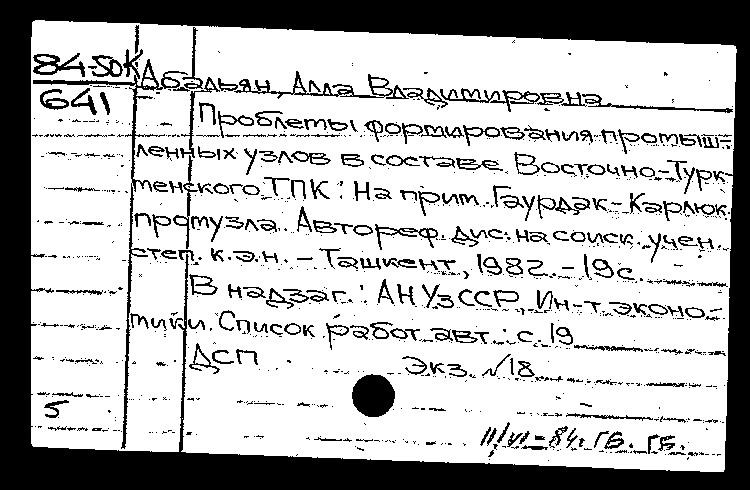 84-50К Абальян, Алла Владимировна
641
Проблемы формирования промыш-
ленных узлов в составе Восточно-Турк-
менского ТПК : На прим. Гаурдак-Карлюк.
промузла. Автореф. дис. на соиск. учен.
степ. к.э.н. - Ташкент, 1982. - 19 с.
В надзаг. : АН УзССР, Ин-т эконо-
мики. Список работ авт. : с. 19
ДСП Экз. №18
5
11/VI-84. ГБ. ГБ.